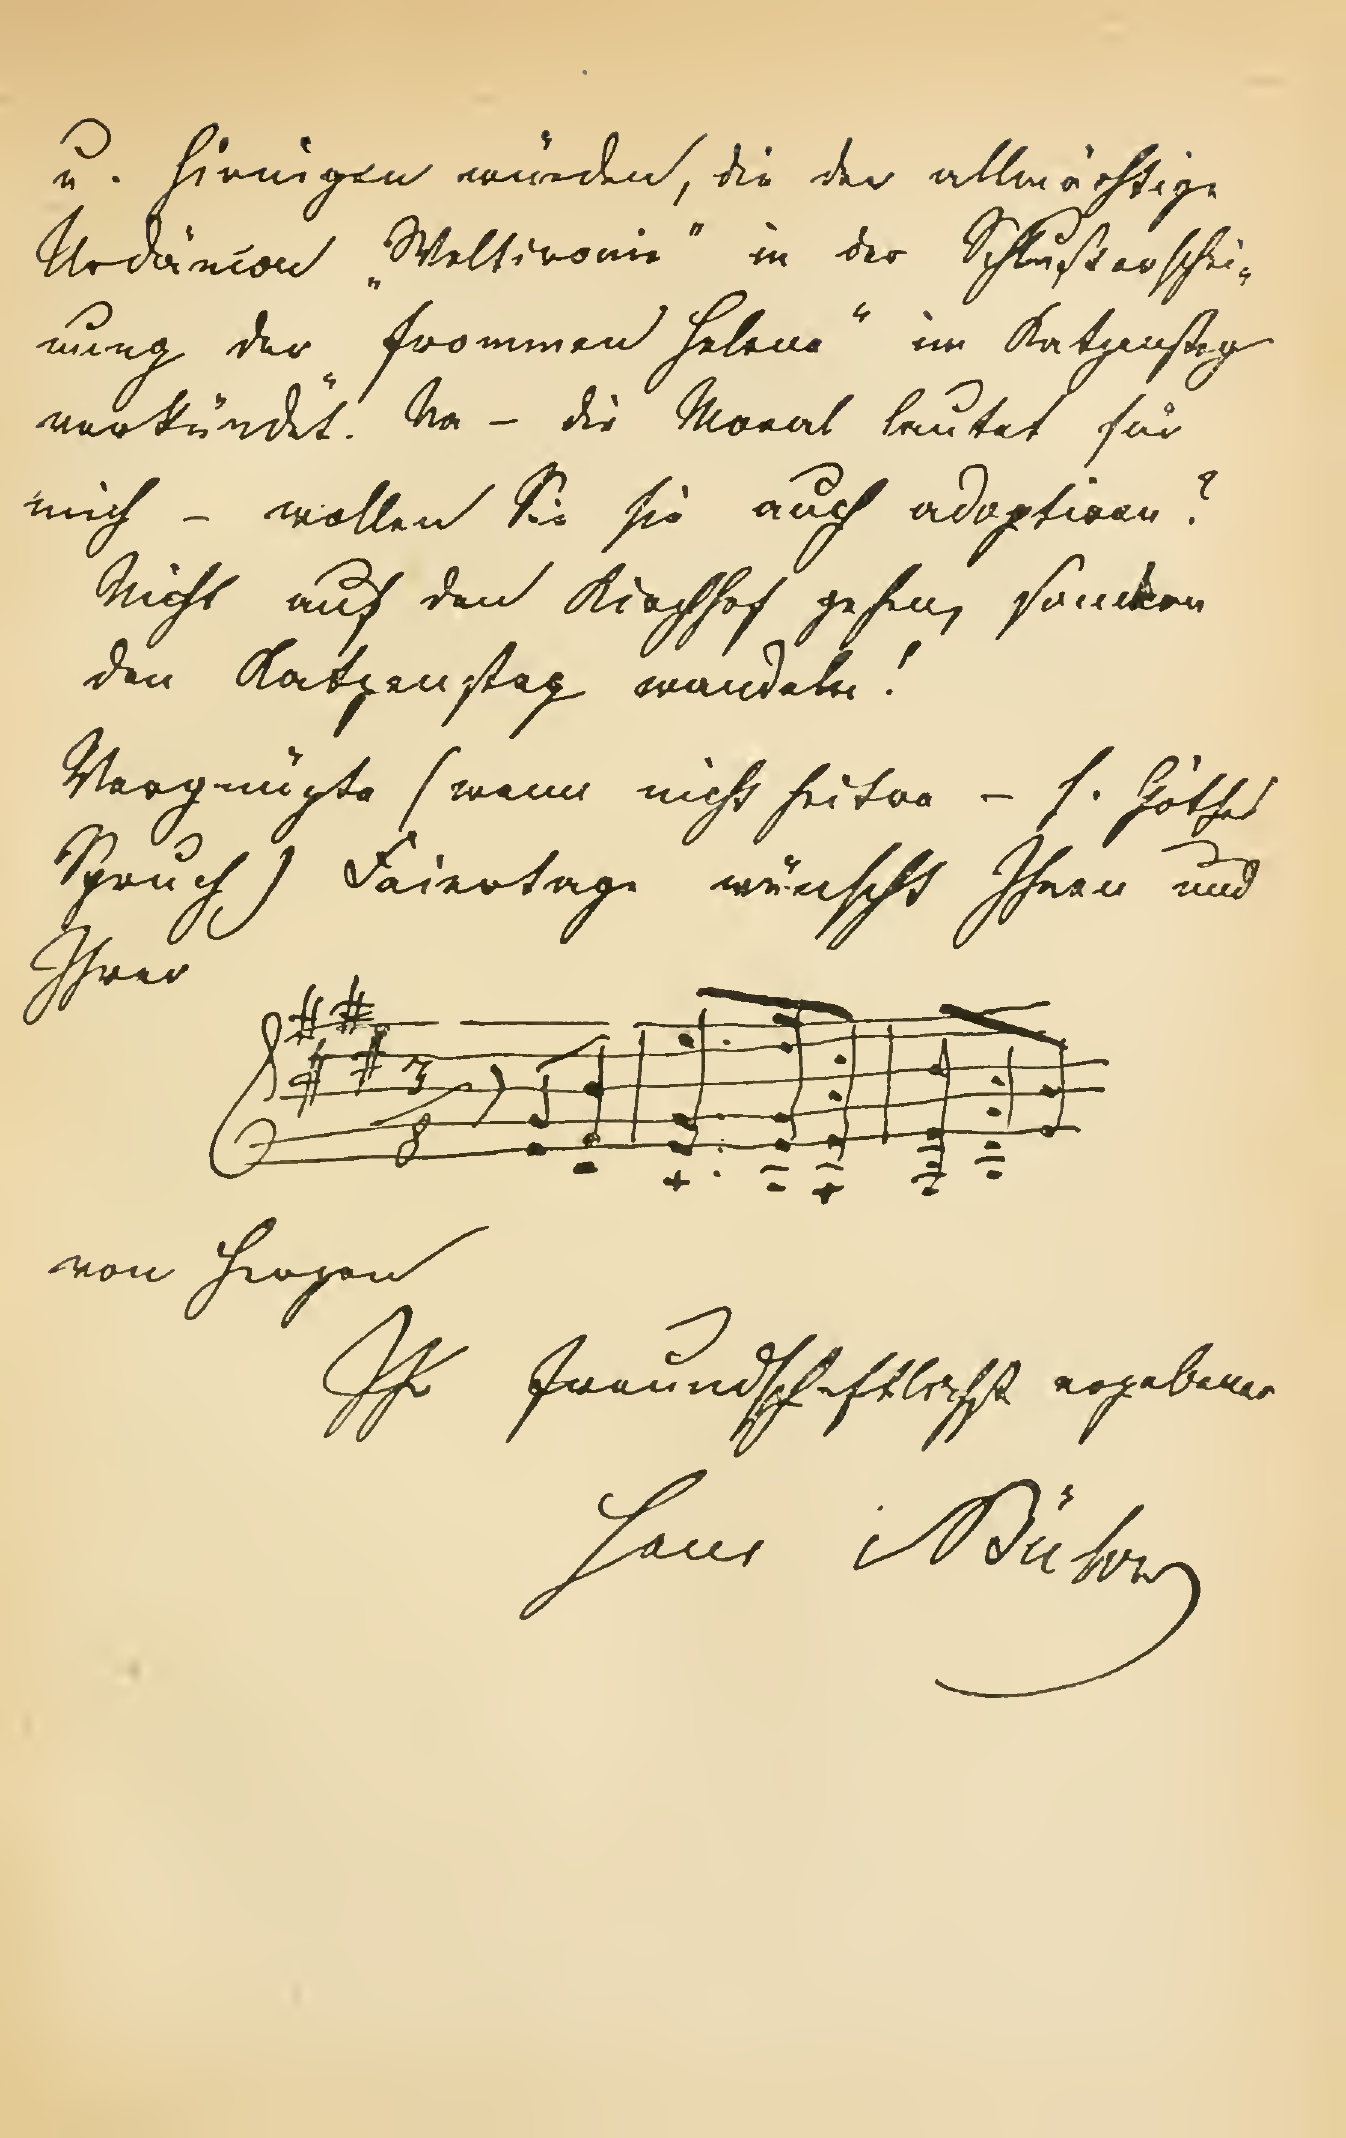 u. hirnigen würden, die der allmächtige
Urdämon „Weltironie" in der Schlußerschei-
nung der „frommen Helene" im Katzensteg
verkündet. Na – die Moral lautet für
mich – wollen Sie sie auch adoptiren?
Nicht auf den Kirchhof gehen, sondern
den Katzensteg wandeln!
Vergnügte (wenn nicht heitre – s. Göthes
Spruch) Feiertage wünscht Ihnen und
Ihrer
3
8
von Herzen
Ihr freundschaftlichst ergebener
Hans v Bülow